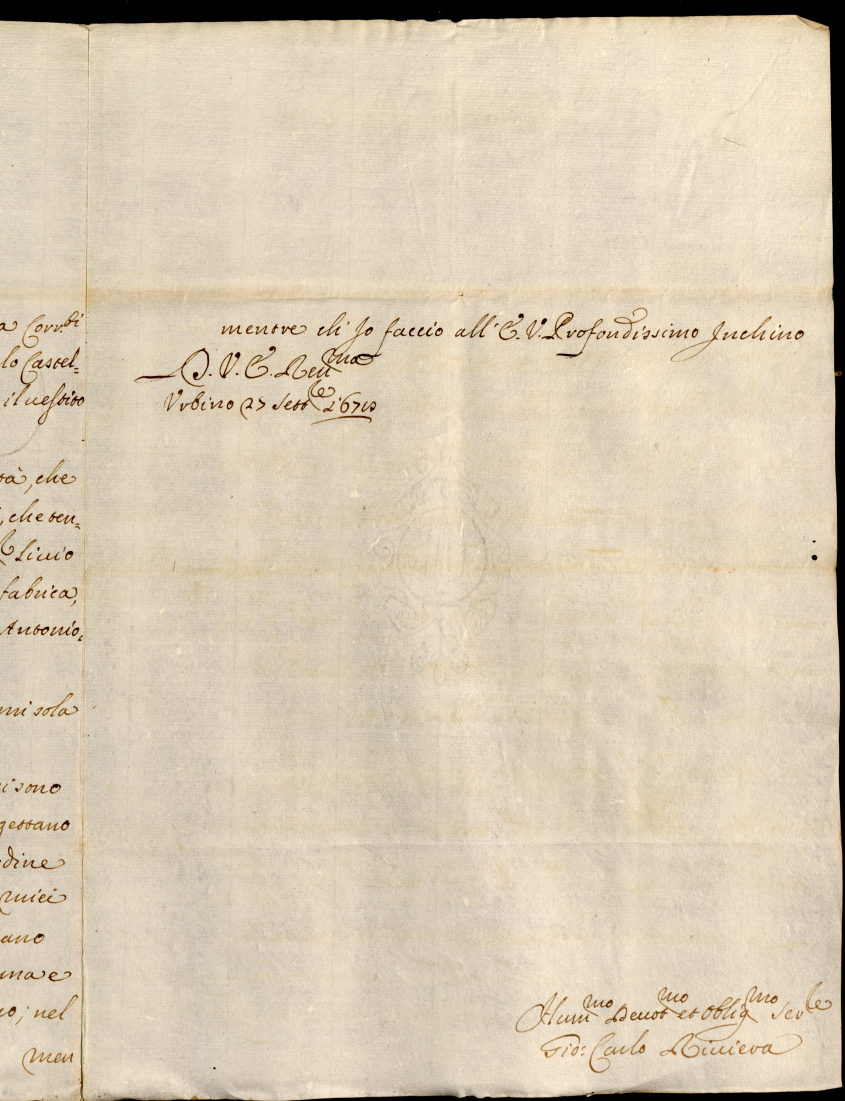 a Corr.ti
lo Castel=
il vestito
tà, che
, che ten=
Livio
fabrica,
Antonio,
mi sola
i sono
gettano
dine
ano
una e
o; nel
men
mentre di Jo faccio all' E. V. Profondissimo Inchino
D. V. E. Reu.ma
Urbino 27 Sett.e
Hum.mo Deuot.mo et Oblig.mo Ser.le
Gio: Carlo Riuiera